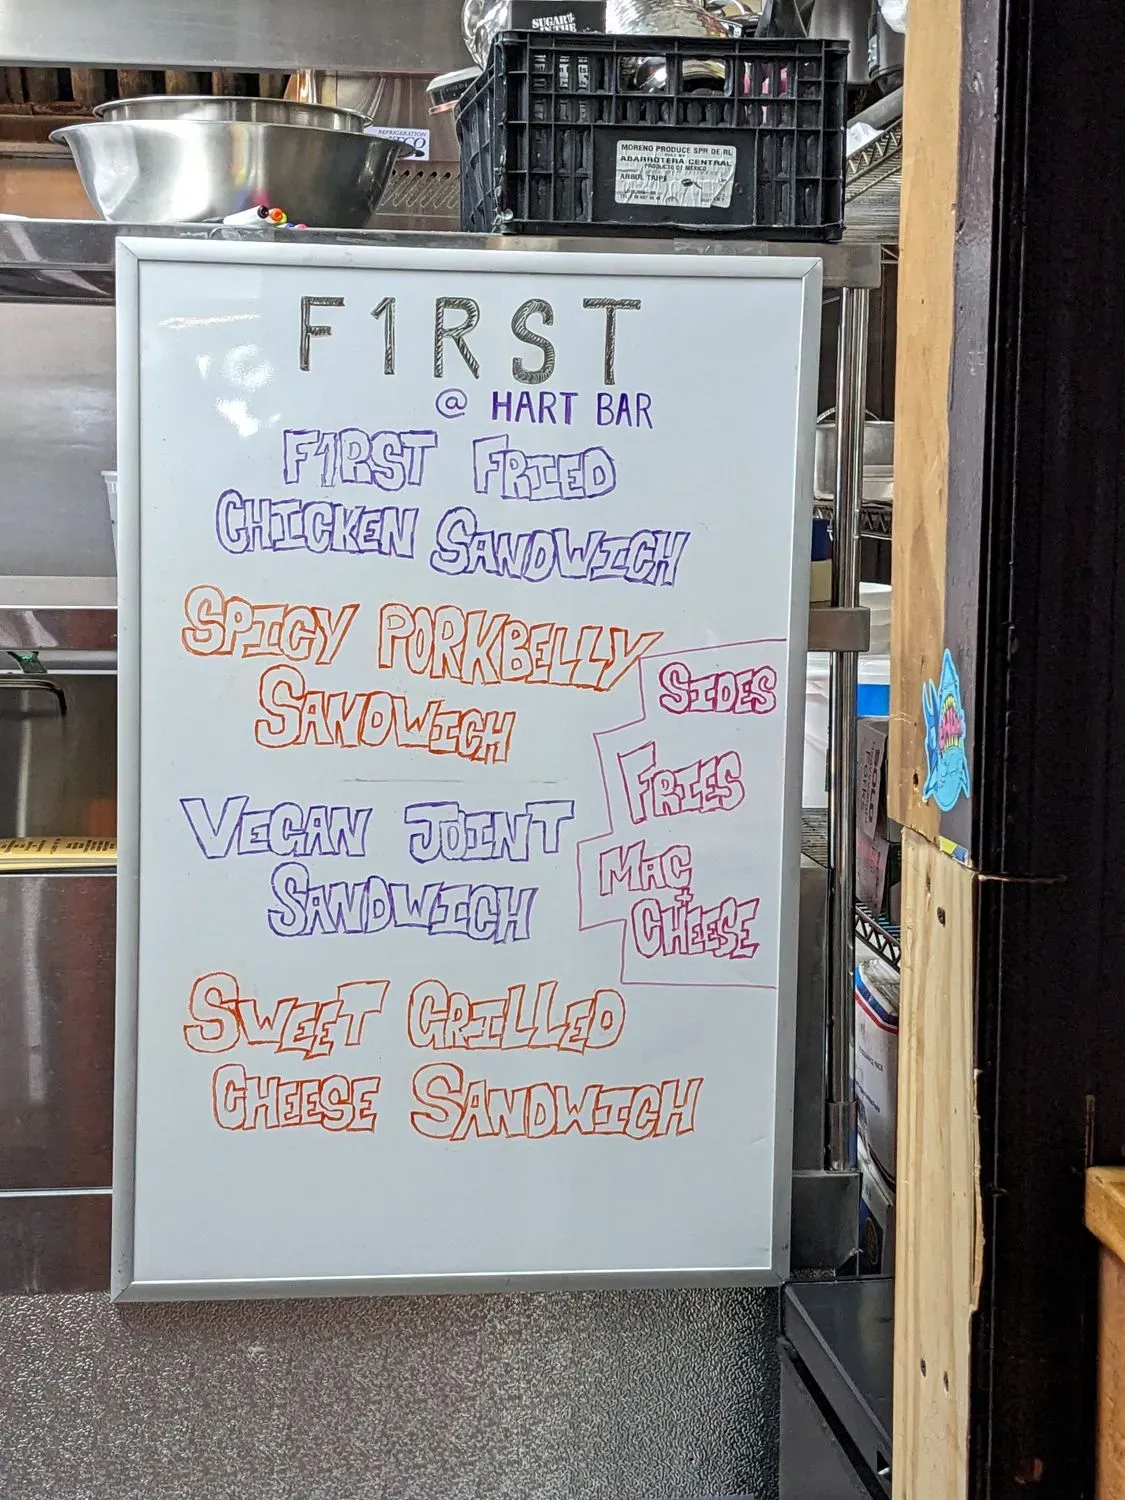 SUGAR
IN THE
REFRIGERATION
MORENO PRODUCE SPR DE RL
ABARROTERA CENTRAL
PRODUCTO DE MEXICO
F1RST
@ HART BAR
F1RST FRIED
CHICKEN SANDWICH
SPICY PORKBELLY
SANDWICH
VEGAN JOINT
SANDWICH
SWEET GRILLED
CHEESE SANDWICH
SIDES
FRIES
MAC
+
CHEESE